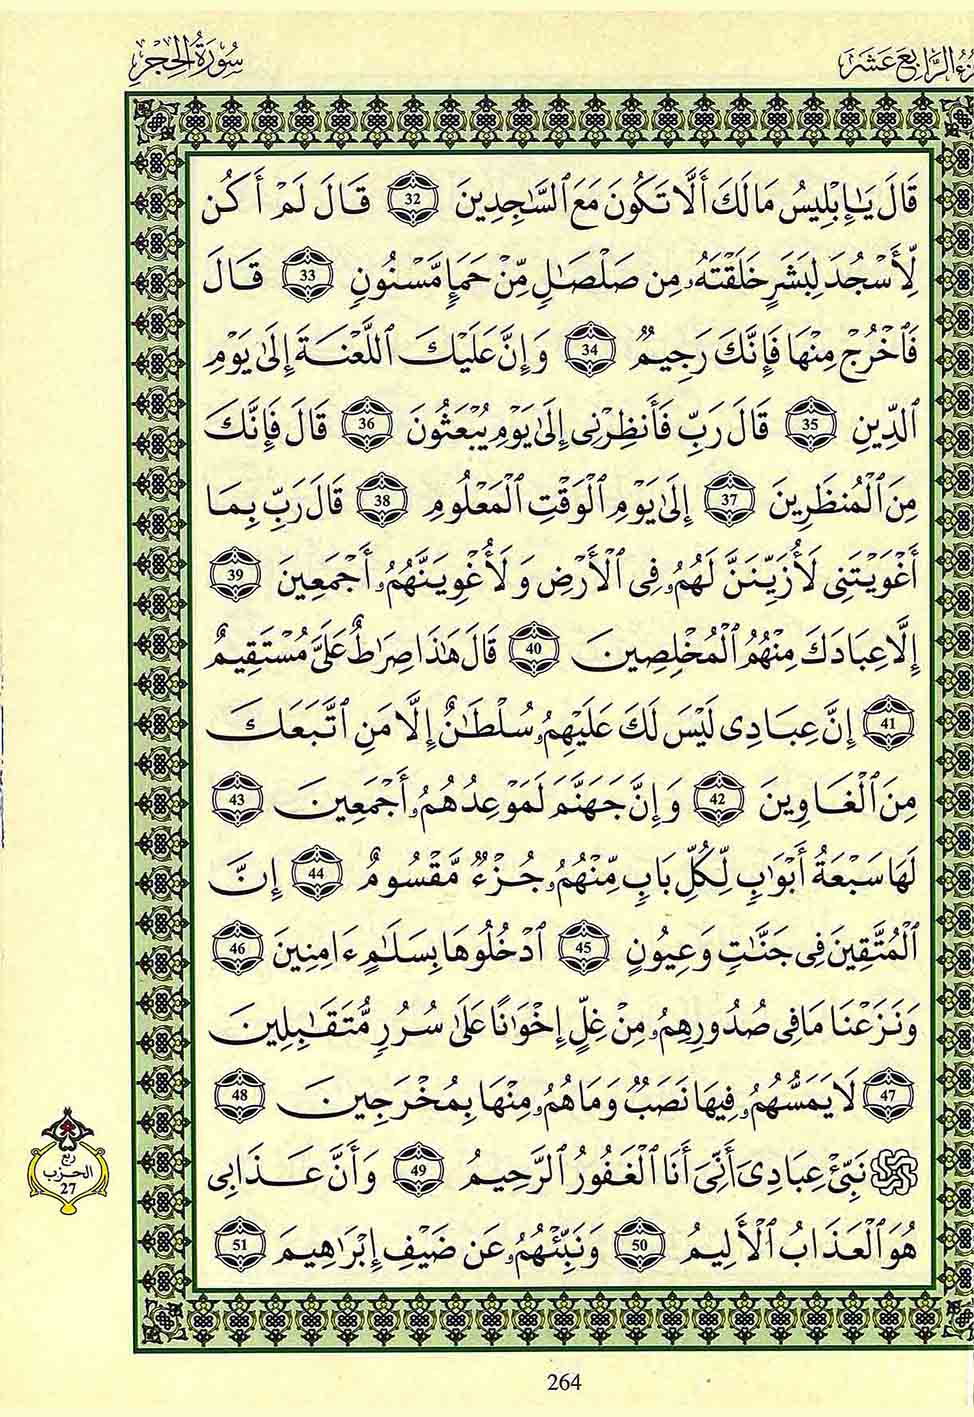 سُورَةُ الْحِجْرِ
الرَّابِعَ عَشَرَ
قَالَ يَٰإِبْلِيسُ مَا لَكَ أَلَّا تَكُونَ مَعَ ٱلسَّٰجِدِينَ 32 قَالَ لَمْ أَكُن
لِّأَسْجُدَ لِبَشَرٍ خَلَقْتَهُۥ مِن صَلْصَٰلٍ مِّنْ حَمَإٍ مَّسْنُونٍ 33 قَالَ
فَٱخْرُجْ مِنْهَا فَإِنَّكَ رَجِيمٌ 34 وَإِنَّ عَلَيْكَ ٱللَّعْنَةَ إِلَىٰ يَوْمِ
ٱلدِّينِ 35 قَالَ رَبِّ فَأَنظِرْنِى إِلَىٰ يَوْمِ يُبْعَثُونَ 36 قَالَ فَإِنَّكَ
مِنَ ٱلْمُنظَرِينَ 37 إِلَىٰ يَوْمِ ٱلْوَقْتِ ٱلْمَعْلُومِ 38 قَالَ رَبِّ بِمَا
أَغْوَيْتَنِى لَأُزَيِّنَنَّ لَهُمُۥ فِى ٱلْأَرْضِ وَلَأُغْوِيَنَّهُمُۥ أَجْمَعِينَ 39
إِلَّا عِبَادَكَ مِنْهُمُ ٱلْمُخْلِصِينَ 40 قَالَ هَٰذَا صِرَٰطٌ عَلَىَّ مُسْتَقِيمٌ
41 إِنَّ عِبَادِى لَيْسَ لَكَ عَلَيْهِمُۥ سُلْطَٰنٌ إِلَّا مَنِ ٱتَّبَعَكَ
مِنَ ٱلْغَاوِينَ 42 وَإِنَّ جَهَنَّمَ لَمَوْعِدُهُمُۥ أَجْمَعِينَ 43
لَهَا سَبْعَةُ أَبْوَٰبٍ لِّكُلِّ بَابٍ مِّنْهُمُۥ جُزْءٌ مَّقْسُومٌ 44 إِنَّ
ٱلْمُتَّقِينَ فِى جَنَّٰتٍ وَعِيُونٍ 45 ٱدْخُلُوهَا بِسَلَٰمٍ ءَامِنِينَ 46
وَنَزَعْنَا مَا فِى صُدُورِهِمُۥ مِنْ غِلٍّ إِخْوَٰنًا عَلَىٰ سُرُرٍ مُّتَقَٰبِلِينَ
47 لَا يَمَسُّهُمُۥ فِيهَا نَصَبٌ وَمَا هُمُۥ مِنْهَا بِمُخْرَجِينَ 48
نَبِّئْ عِبَادِىَ أَنِّىَ أَنَا ٱلْغَفُورُ ٱلرَّحِيمُ 49 وَأَنَّ عَذَابِى
هُوَ ٱلْعَذَابُ ٱلْأَلِيمُ 50 وَنَبِّئْهُمُۥ عَن ضَيْفِ إِبْرَٰهِيمَ 51
ربع
الحزب
27
264